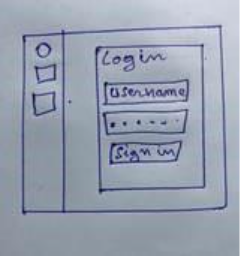 Login
Username
.....
Sign in